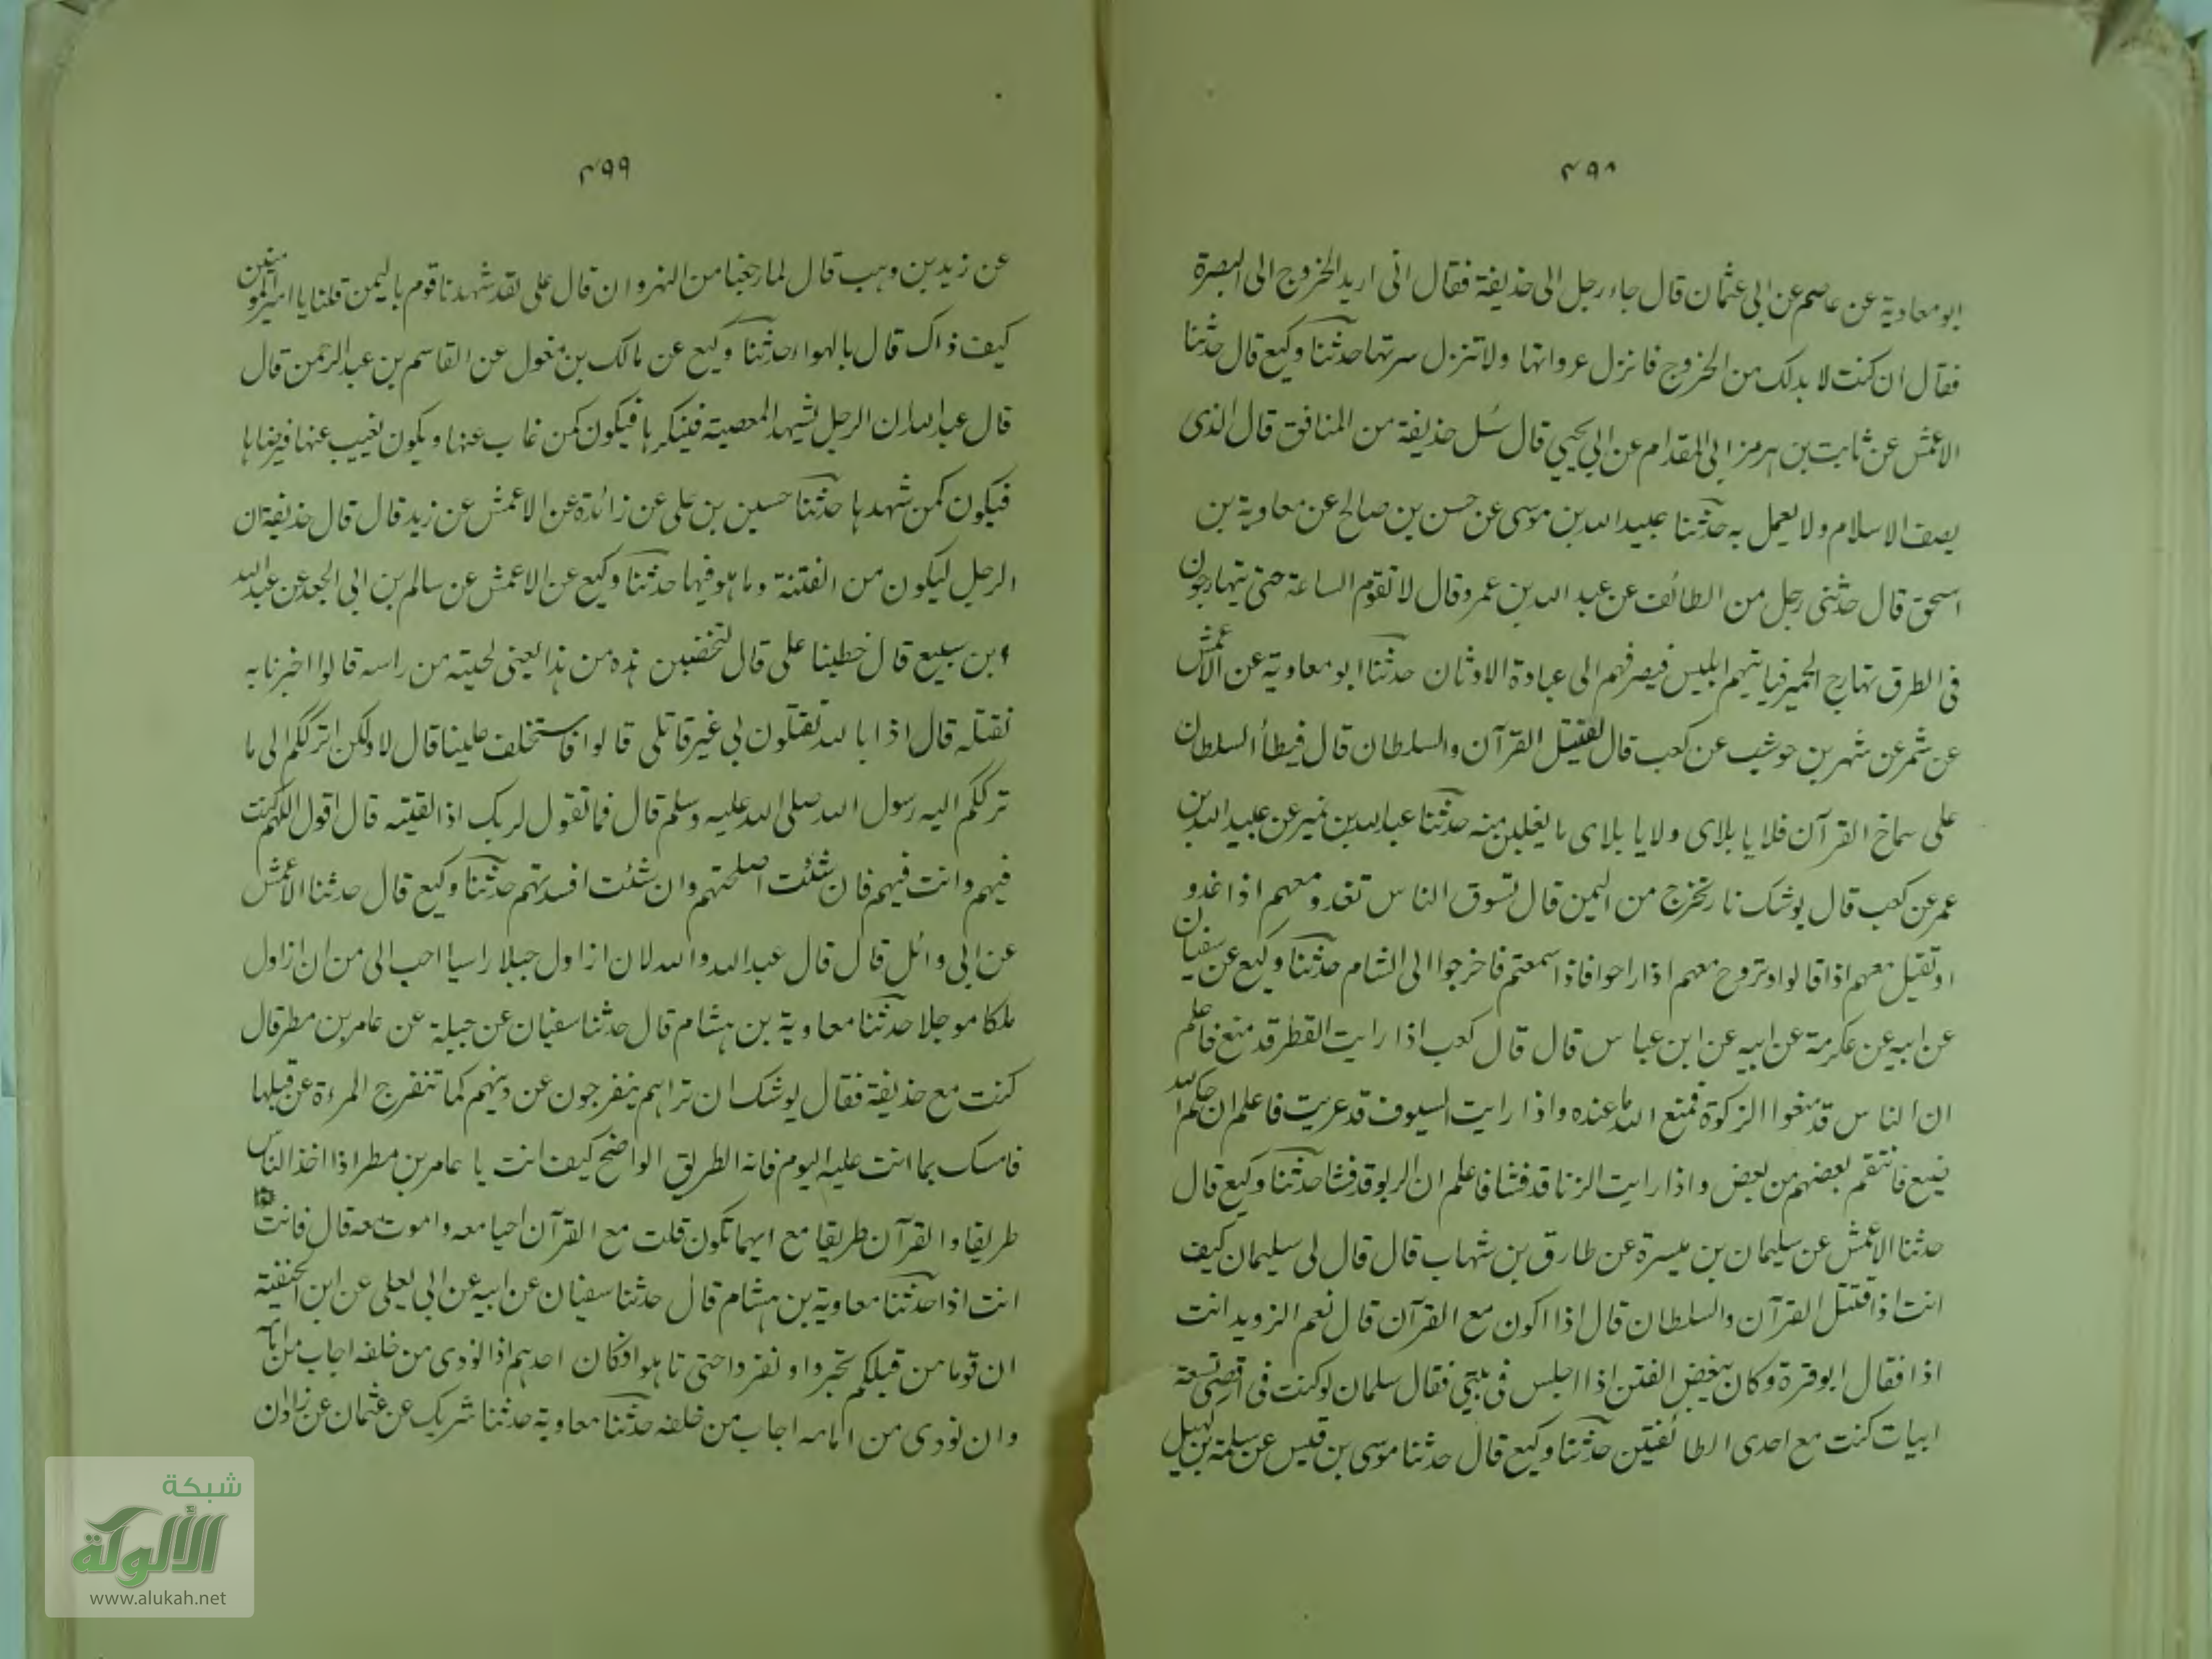 ۴۹۸
ابو معاوية عن عاصم عن ابى عثمان قال جاء رجل الى حذيفة فقال انى اريد الخروج الى البصرة
فقال ان كنت لا بد لك من الخروج فانزل عرواتها ولا تنزل سرتها حدثنا وكيع قال حدثنا
الاعمش عن ثابت بن هرمز ابى المقدام عن ابى يحيى قال سئل حذيفة من المنافق قال الذى
يصف الاسلام ولا يعمل به حدثنا عبيد الله بن موسى عن حسن بن صالح عن معاوية بن
اسحق قال حدثنى رجل من الطائف عن عبد الله بن عمرو قال لا تقوم الساعة حتى يتهارجون
فى الطرق تهارج الحمير فياتيهم ابليس فيصرفهم الى عبادة الاوثان حدثنا ابو معاوية عن الاعمش
عن شمر عن شهر بن حوشب عن كعب قال ليقتتل القرآن والسلطان قال فيطأ السلطان
على سماخ القرآن فلايا بلاى ولايا بلاى ما يغلبن منه حدثنا عبد الله بن نمير عن عبيد الله بن
عمر عن كعب قال يوشك نار تخرج من اليمن قال تسوق الناس تغدو معهم اذا غدو
او تقيل معهم اذا قالوا وتروح معهم اذا راحوا فاذا سمعتم فاخرجوا الى الشام حدثنا وكيع عن سفيان
عن ابيه عن عكرمة عن ابيه عن ابن عباس قال قال كعب اذا رايت القطر قد منع فاعلم
ان الناس قد منعوا الزكوة فمنع الله ما عنده واذا رايت السيوف قد عريت فاعلم ان حكم الله
ضيع فانتقم بعضهم من بعض واذا رايت الزنا قد فشا فاعلم ان الربو قد فشا حدثنا وكيع قال
حدثنا الاعمش عن سليمان بن ميسرة عن طارق بن شهاب قال قال لى سليمان كيف
انت اذا اقتتل القرآن والسلطان قال اذا اكون مع القرآن قال نعم الزويد انت
اذا فقال ابو قرة وكان يبغض الفتن اذا اجلس فى بيتى فقال سلمان لو كنت فى اقصى تسعة
ابيات كنت مع احدى الطائفتين حدثنا وكيع قال حدثنا موسى بن قيس عن سلمة بن كهيل
۴۹۹
عن زيد بن وهب قال لما رجعنا من النهروان قال على لقد شهدنا قوم باليمن قلنا يا امير المومنين
كيف ذاك قال بالهواء حدثنا وكيع عن مالك بن مغول عن القاسم بن عبد الرحمن قال
قال عبد الله ان الرجل يشهد المعصية فينكرها فيكون كمن غاب عنها ويكون يغيب عنها فيرضاها
فيكون كمن شهدها حدثنا حسين بن على عن زائدة عن الاعمش عن زيد قال قال حذيفة ان
الرجل ليكون من الفتنة وما هو فيها حدثنا وكيع عن الاعمش عن سالم بن ابى الجعد عن عبد الله
بن سبيع قال خطبنا على قال لتخضبن هذه من هذا يعنى لحيته من راسه قالوا اخبرنا به
نقتله قال اذا بالله تقتلون بى غير قاتلى قالوا فاستخلف علينا قال لا ولكن اترككم الى ما
ترككم اليه رسول الله صلى الله عليه وسلم قال فما تقول لربك اذا لقيته قال اقول اللهم كنت
فيهم وانت فيهم فان شئت اصلحتهم وان شئت افسدتهم حدثنا وكيع قال حدثنا الاعمش
عن ابى وائل قال قال عبد الله والله لان ازاول جبلا راسيا احب الى من ان ازاول
ملكا موجلا حدثنا معاوية بن هشام قال حدثنا سفيان عن جبلة عن عامر بن مطر قال
كنت مع حذيفة فقال يوشك ان تراهم ينفرجون عن دينهم كما تنفرج المرءة عن قبلها
فامسك بما انت عليه اليوم فانه الطريق الواضح كيف انت يا عامر بن مطر اذا اخذ الناس
طريقا والقرآن طريقا مع ايهما تكون قلت مع القرآن احيا معه واموت معه قال فانت
انت اذا حدثنا معاوية بن هشام قال حدثنا سفيان عن ابيه عن ابى يعلى عن ابن الحنفية
ان قوما من قبلكم تحيروا ونفروا حتى تاهوا فكان احدهم اذا نودى من خلفه اجاب من امامه
وان نودى من امامه اجاب من خلفه حدثنا معاوية حدثنا شريك عن عثمان عن زاذان
شبكة
الألوكة
www.alukah.net